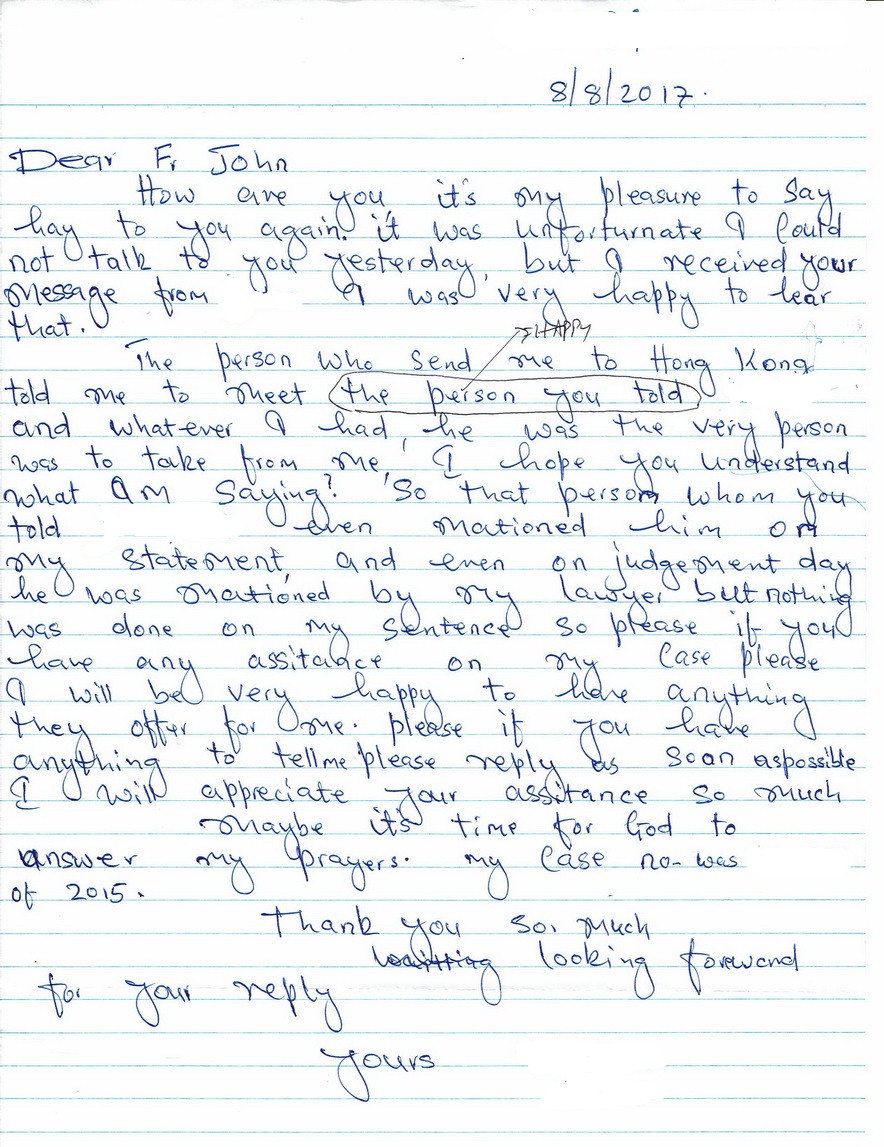 8/8/2017.
Dear Fr John
How are you it's my pleasure to say
hay to you again. it was unforturnate I could
not talk to you yesterday, but I received your
message from I was very happy to lear
that.
HAPPY
The person who send me to Hong Kong
told me to meet the person you told
and whatever I had, he was the very person
was to take from me, I hope you understand
what am saying? So that person whom you
told even mationed him on
my statement, and even on judgement day
he was mationed by my lawyer but nothing
was done on my sentence so please if you
have any assitance on my case please
I will be very happy to have anything
they offer for me. please if you have
anything to tell me please reply as soan aspossible
I will appreciate your assitance so much
maybe it's time for God to
answer my prayers. my case no- was
of 2015.
Thank you so, much
looking forward
for your reply
yours